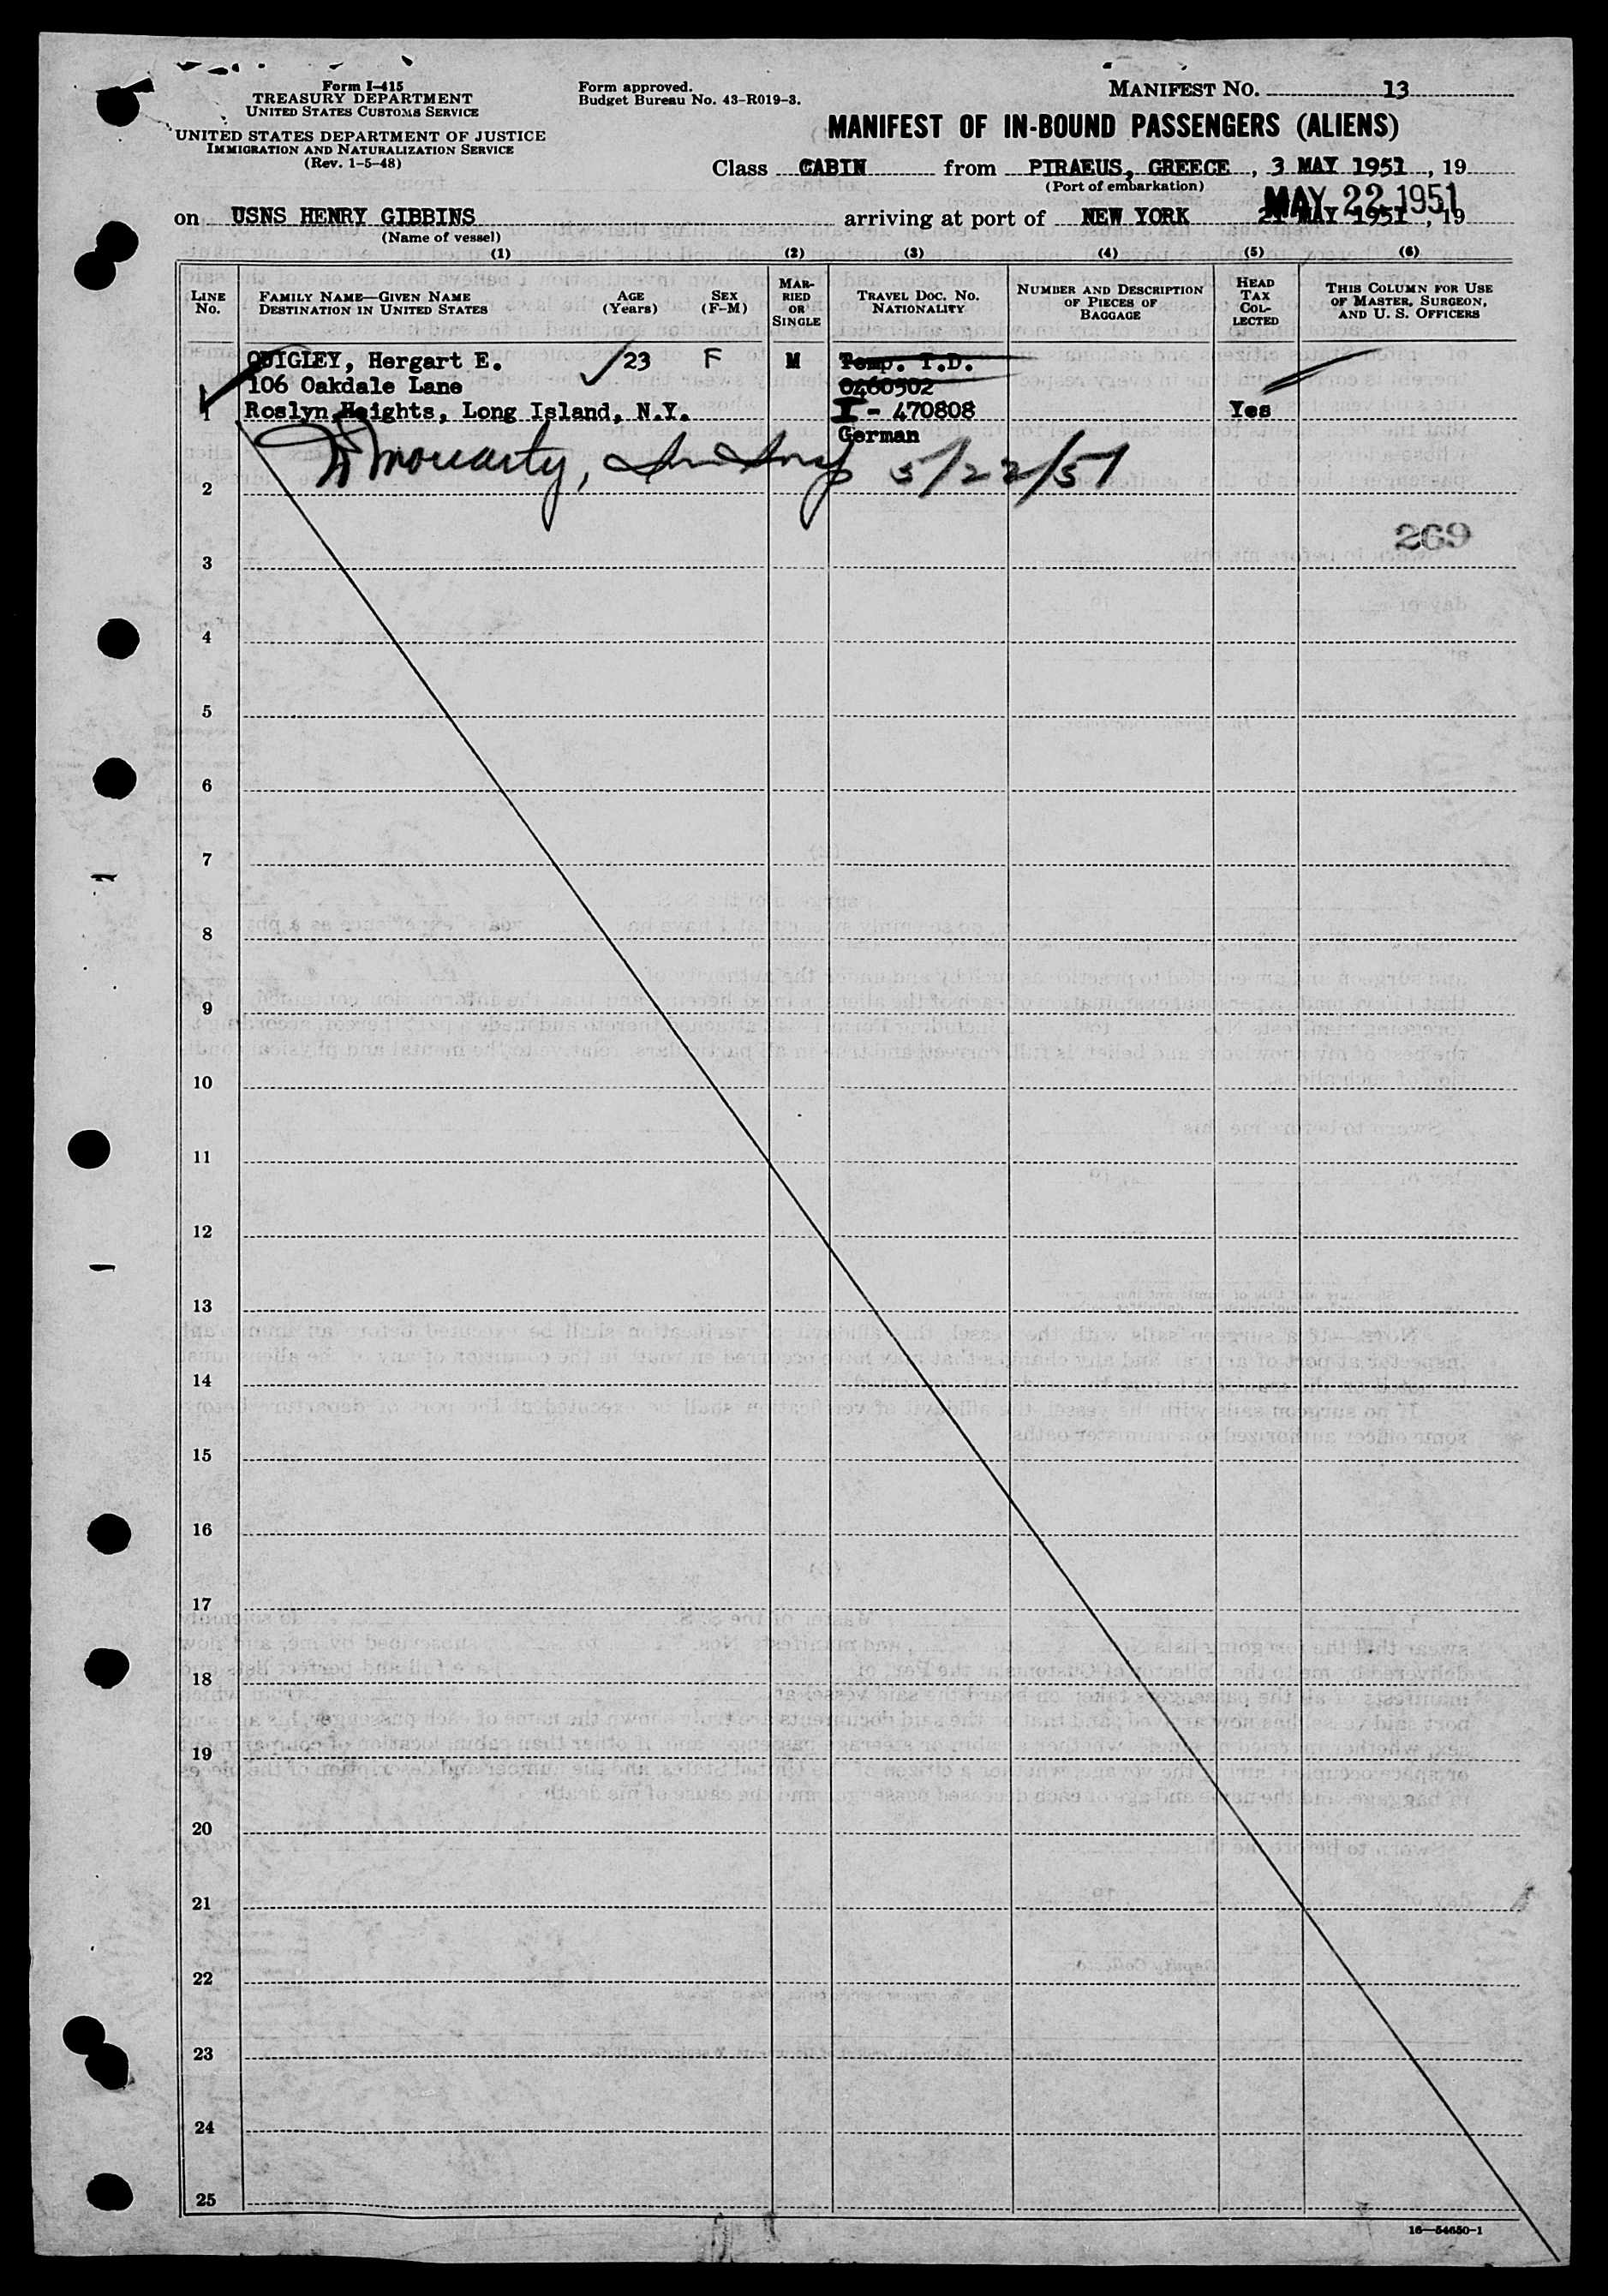 Form I-415
TREASURY DEPARTMENT
UNITED STATES CUSTOMS SERVICE
UNITED STATES DEPARTMENT OF JUSTICE
IMMIGRATION AND NATURALIZATION SERVICE
(Rev. 1-5-48)
Form approved.
Budget Bureau No. 43-R019-3.
MANIFEST NO. 13
MANIFEST OF IN-BOUND PASSENGERS (ALIENS)
Class CABIN from PIRAEUS, GREECE, 3 MAY 1951, 19
(Port of embarkation)
MAY 22 1951
on USNS HENRY GIBBINS arriving at port of NEW YORK 21 MAY 1951, 19
(Name of vessel)
(1) (2) (3) (4) (5) (6)
LINE No.
FAMILY NAME—GIVEN NAME
DESTINATION IN UNITED STATES
AGE
(Years)
SEX
(F-M)
MAR-
RIED
OR
SINGLE
TRAVEL DOC. NO.
NATIONALITY
NUMBER AND DESCRIPTION
OF PIECES OF
BAGGAGE
HEAD
TAX
COL-
LECTED
THIS COLUMN FOR USE
OF MASTER, SURGEON,
AND U. S. OFFICERS
QUIGLEY, Hergart E. 23 F M Temp. T.D.
106 Oakdale Lane 0460502
1 Roslyn Heights, Long Island, N.Y. I - 470808 Yes
German
Moriarty, 5/22/51
2
269
3
4
5
6
7
8
9
10
11
12
13
14
15
16
17
18
19
20
21
22
23
24
25
16—54650-1